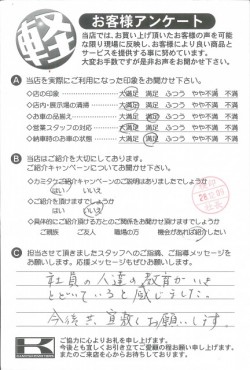 軽
お客様アンケート
当店では、お買い上げ頂いたお客様の声を可能
な限り現場に反映し、お客様により良い商品と
サービスを提供する事に努めています。
大変お手数ですが是非お声をお聞かせ下さい。
A 当店を実際にご利用になった印象をお聞かせ下さい。
◇店の印象 大満足 満足 ふつう やや不満 不満
◇店内・展示場の清掃 大満足 満足 ふつう やや不満 不満
◇お車の品揃え 大満足 満足 ふつう やや不満 不満
◇営業スタッフの対応 大満足 満足 ふつう やや不満 不満
◇納車時のお車の状態 大満足 満足 ふつう やや不満 不満
B 当店はご紹介を大切にしております。
ご紹介キャンペーンについてお聞かせ下さい。
◇カミタケご紹介キャンペーンのご説明はありましたでしょうか
はい いいえ
◇ご紹介を頂けますでしょうか
はい いいえ
◇具体的にご紹介頂ける方とのご関係をお聞かせ頂けますでしょうか
ご親族 ご友人 職場の方 機会があれば紹介したい
C 担当させて頂きましたスタッフへのご指摘、ご指導メッセージを
お願いします。応援メッセージもぜひお願いします。
社員の人達の教育がいき
とどいていると感じました。
今後共宜敷くお願いします。
ご協力に心よりお礼を申し上げます。
今後とも宜しくお引き立てご愛顧の程お願い申し上げます。
またのご来店を心からお待ちしております。